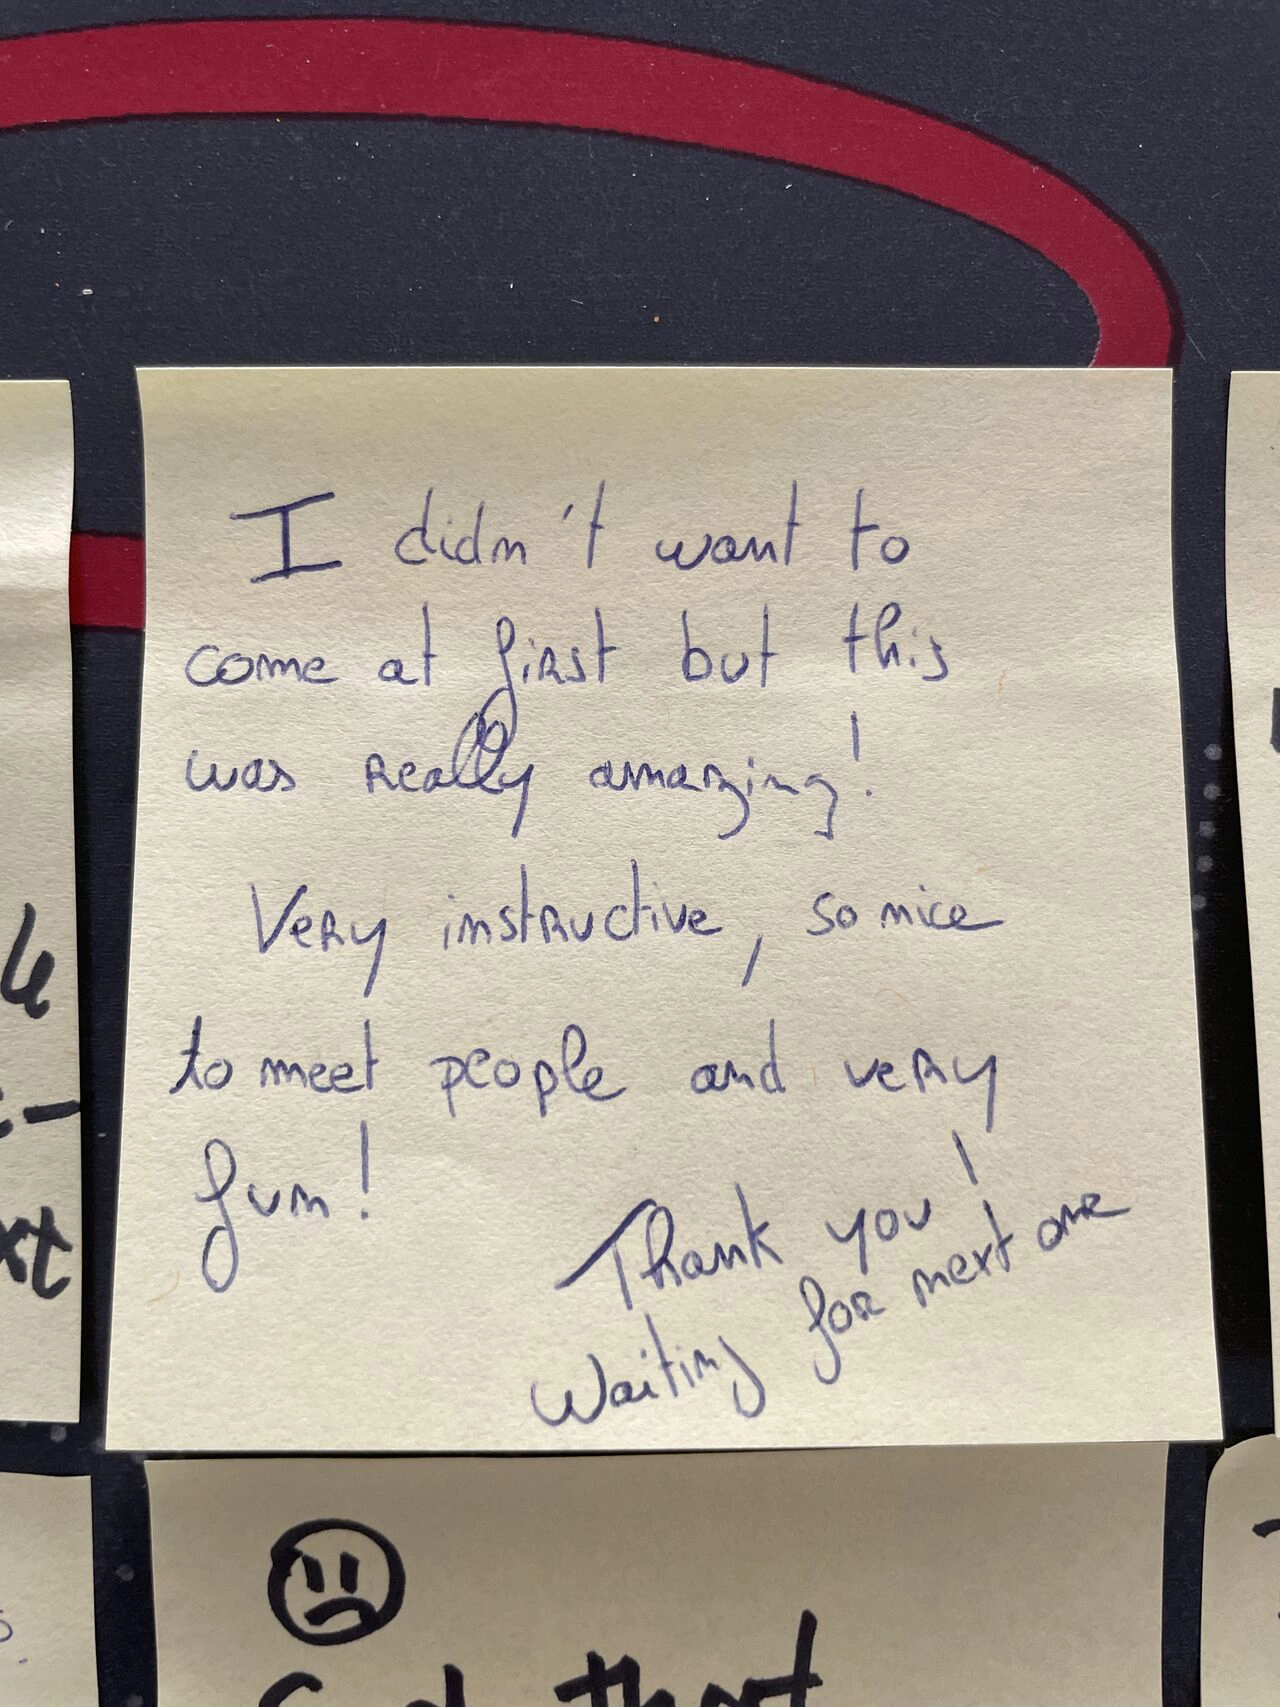 I didn't want to
come at first but this
was really amazing!
Very instructive, so nice
to meet people and very
fun!
Thank you!
Waiting for next one
that